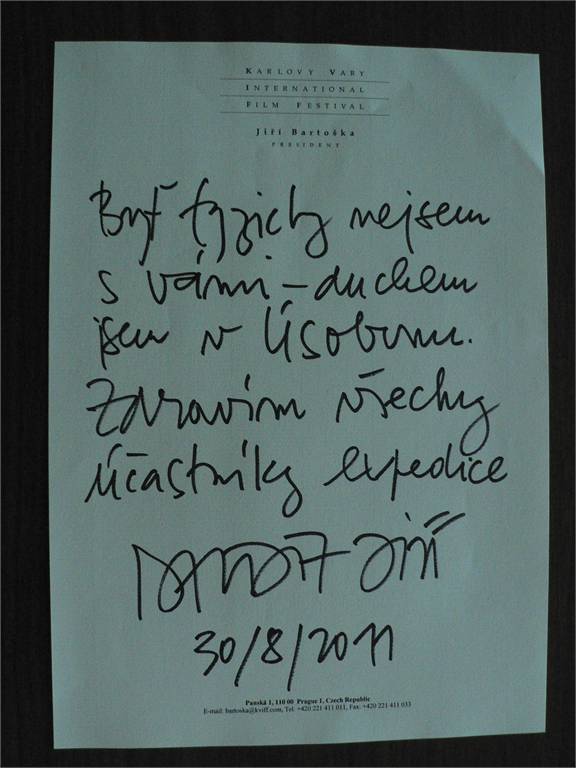 KARLOVY VARY
INTERNATIONAL
FILM FESTIVAL
Jiří Bartoška
PRESIDENT
Byť fyzicky nejsem
s vámi – duchem
jsem v Lisabonu.
Zdravím všechny
účastníky expedice
Jiří
30/8/2011
Panská 1, 110 00 Prague 1, Czech Republic
E-mail: bartoska@kviff.com, Tel: +420 221 411 011, Fax: +420 221 411 033